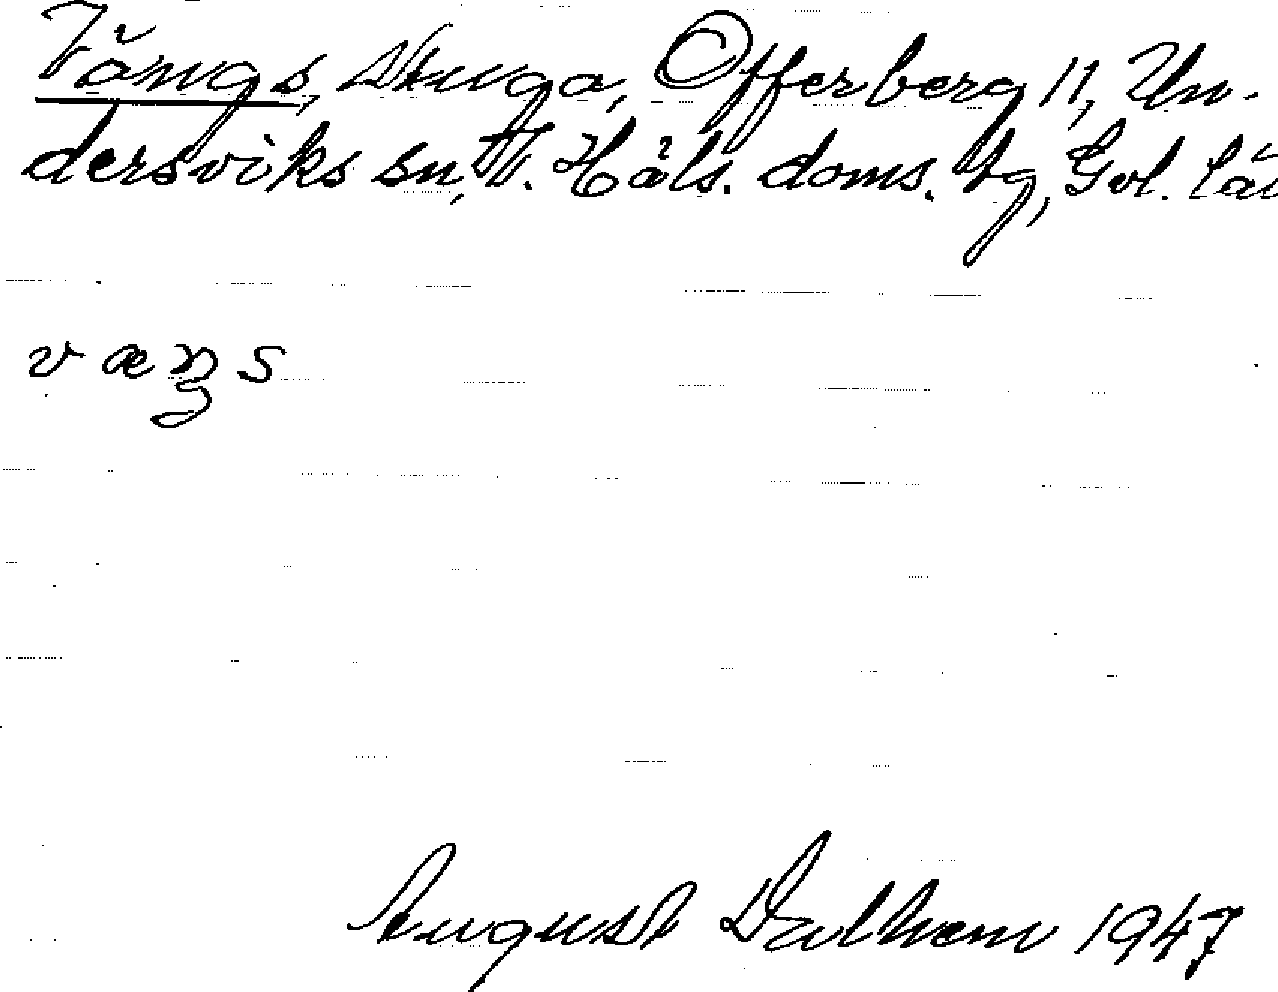 Vängs, stuga, Offerberg 11, Un-
dersviks sn, V. Häls. doms. tg, Gvl. län
v æ ŋ s
August Dalhem 1947